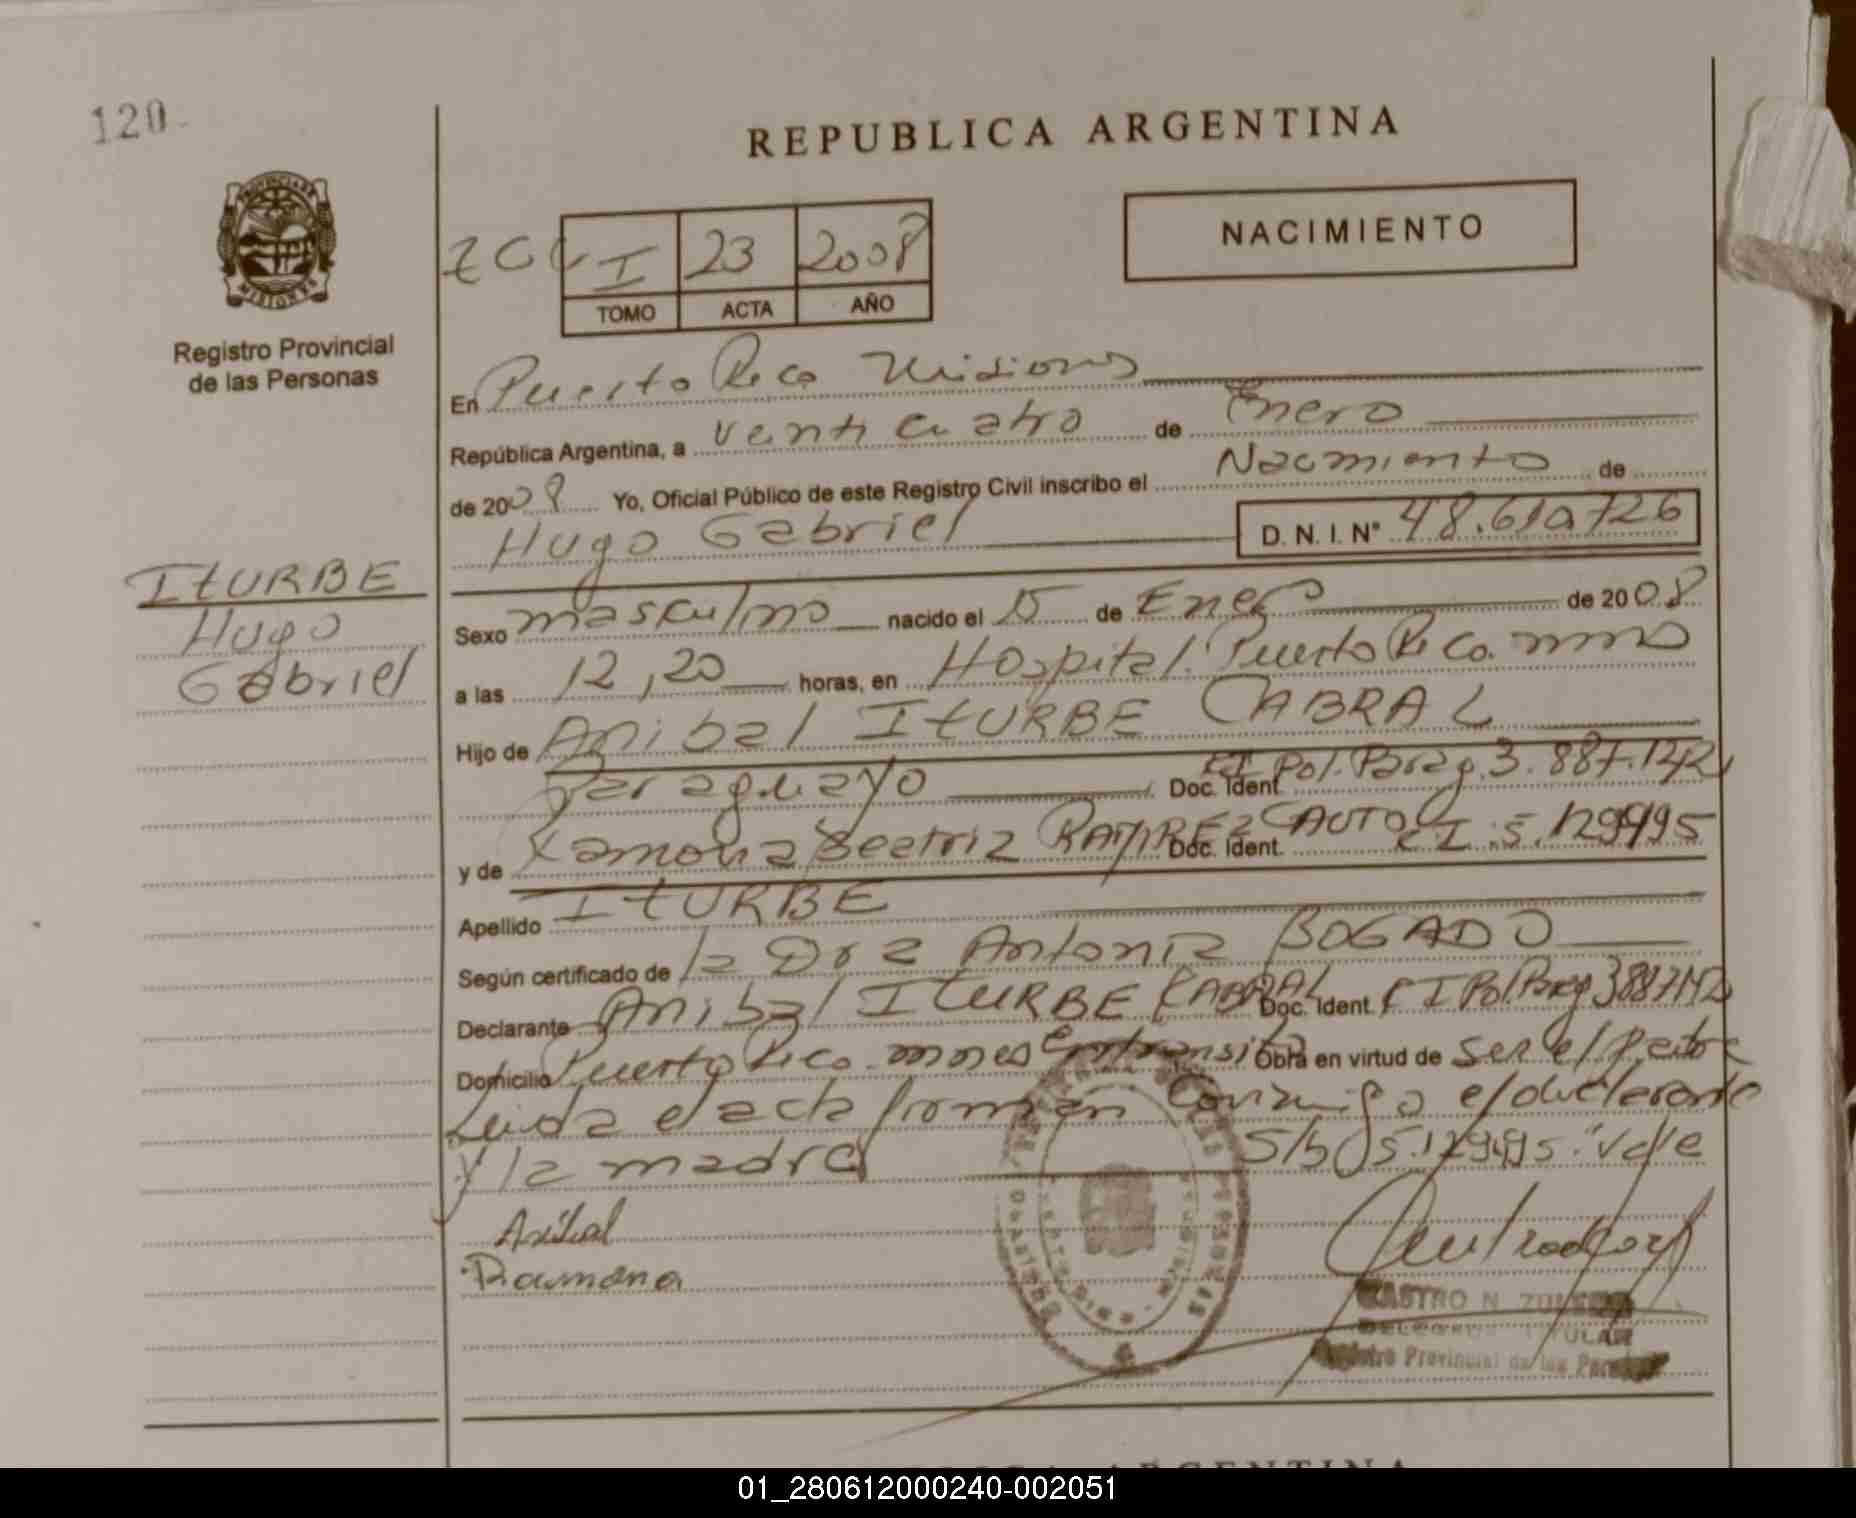 120
REPUBLICA ARGENTINA
PROVINCIA DE
MISIONES
I 23 2008
TOMO ACTA AÑO
NACIMIENTO
Registro Provincial
de las Personas
En Puerto Rico Misiones
República Argentina, a venti cuatro de Enero
de 2008 Yo, Oficial Público de este Registro Civil inscribo el Nacimiento de
Hugo Gabriel D. N. I. N° 48.610.726
ITURBE
Hugo
Gabriel
Sexo masculino nacido el 15 de Enero de 2008
a las 12,20 horas, en Hospital Puerto Rico mnes
Hijo de Anibal ITURBE CABRAL
paraguayo Doc. Ident. CI Pol. Parag. 3.887.142
y de Ramona Beatriz RAMIREZ CAUTO Doc. Ident. CI.5.129995
Apellido ITURBE
Según certificado de la Dra Antonia BOGADO
Declarante Anibal ITURBE CABRAL Doc. Ident. CI Pol Parag 3887142
Domicilio Puerto Rico mnes En transito Obra en virtud de ser el padre
Leida el acta firman conmigo el declarante
y la madre S/b 5.129.995 "Vale
Anibal
Ramona
CASTRO N.
DELEGADO TITULAR
Registro Provincial de las Personas
REPUBLICA ARGENTINA
01_280612000240-002051